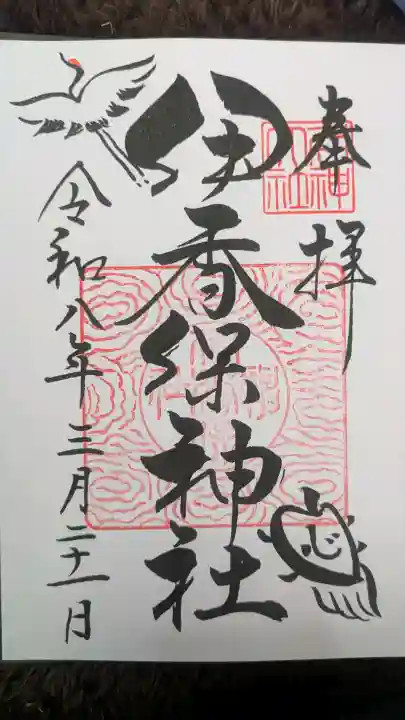 奉拝
伊香保神社
令和八年三月二十一日